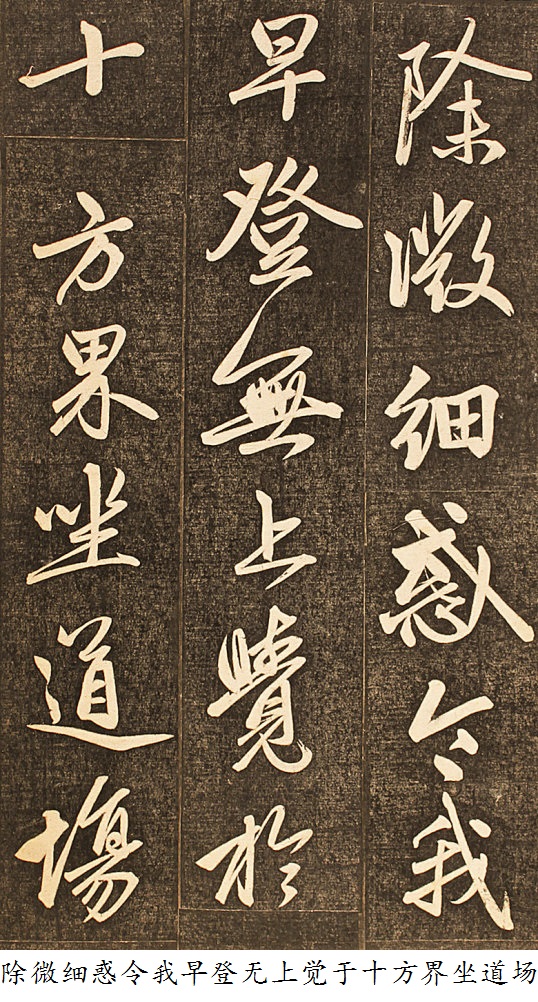 除微細惑令我
早登無上覺於
十方界坐道場
除微细惑令我早登无上觉于十方界坐道场